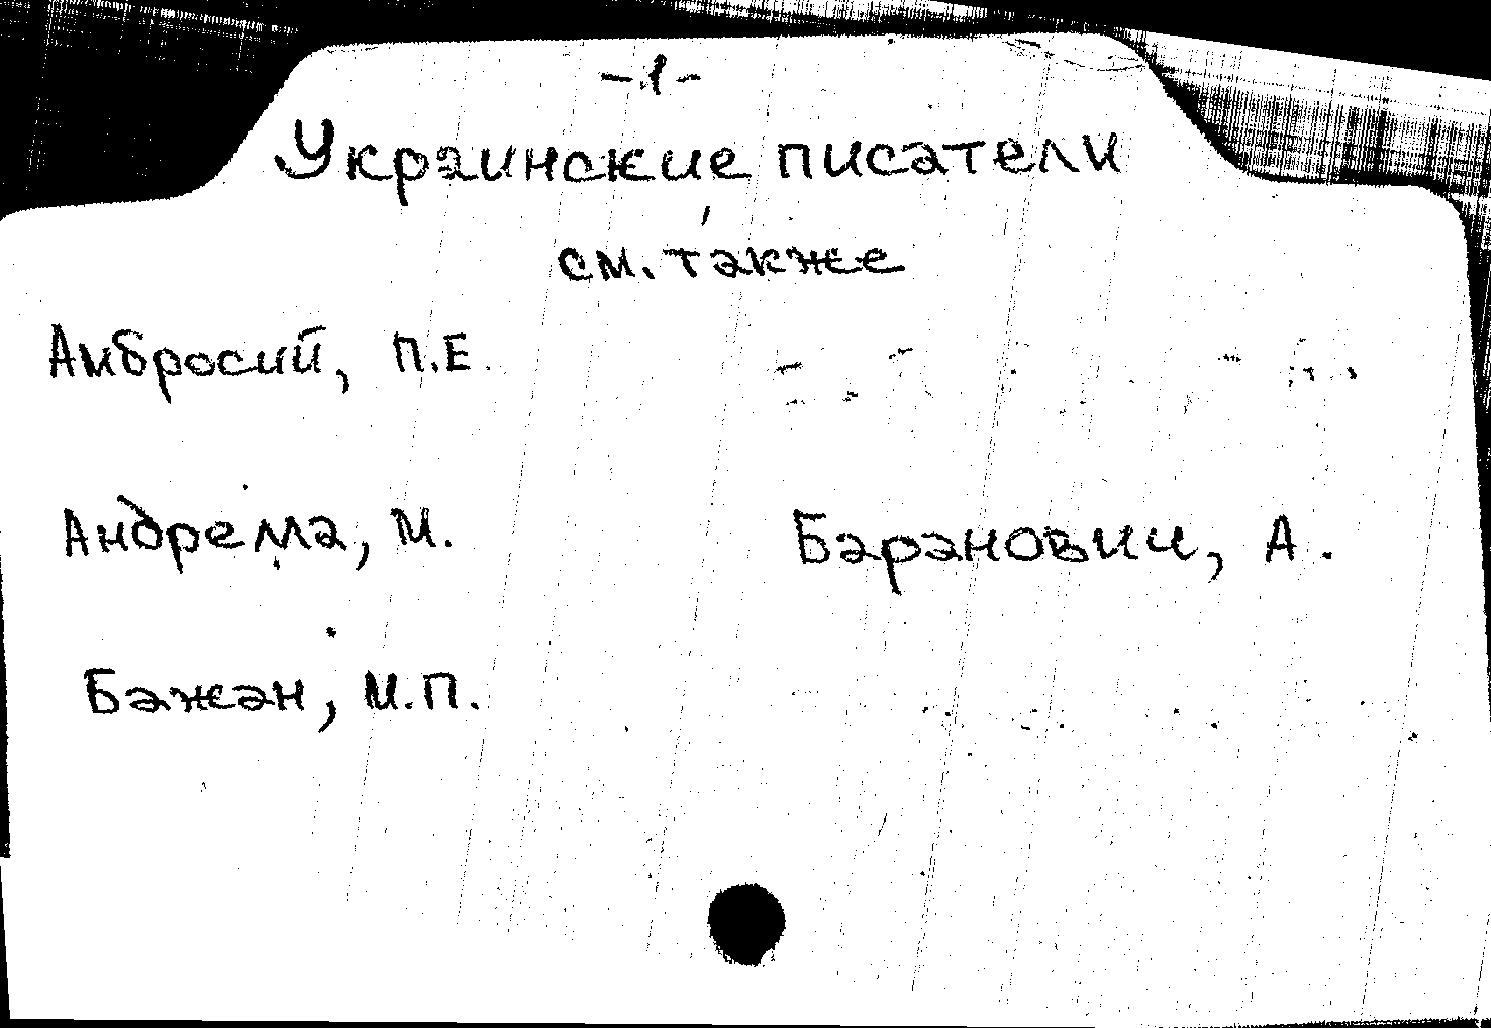 -1-
Украинские писатели
см. также
Амбросий, П.Е.
Андрема, М.
Баранович, А.
Бажан, М.П.